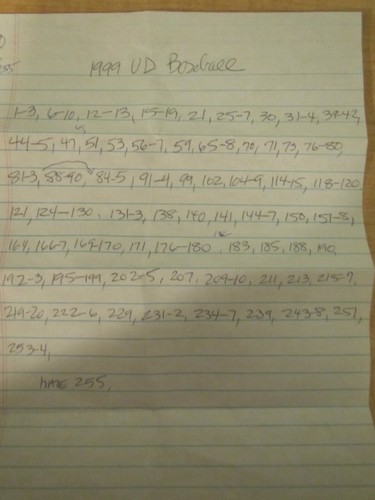 1999 UD Baseball
1-3, 6-10, 12-13, 15-19, 21, 25-7, 30, 31-4, 39-42,
44-5, 47, 51, 53, 56-7, 59, 65-8, 70, 71, 73, 76-80,
81-3, 88-90, 84-5, 91-4, 99, 102, 104-9, 114-15, 118-120
121, 124-130, 131-3, 138, 140, 141, 144-7, 150, 151-8,
164, 166-7, 169-170, 171, 176-180, 183, 185, 188, 190,
192-3, 195-199, 202-5, 207, 209-10, 211, 213, 215-7,
219-20, 222-6, 229, 231-2, 234-7, 239, 243-8, 251,
253-4,
HAVE 255,